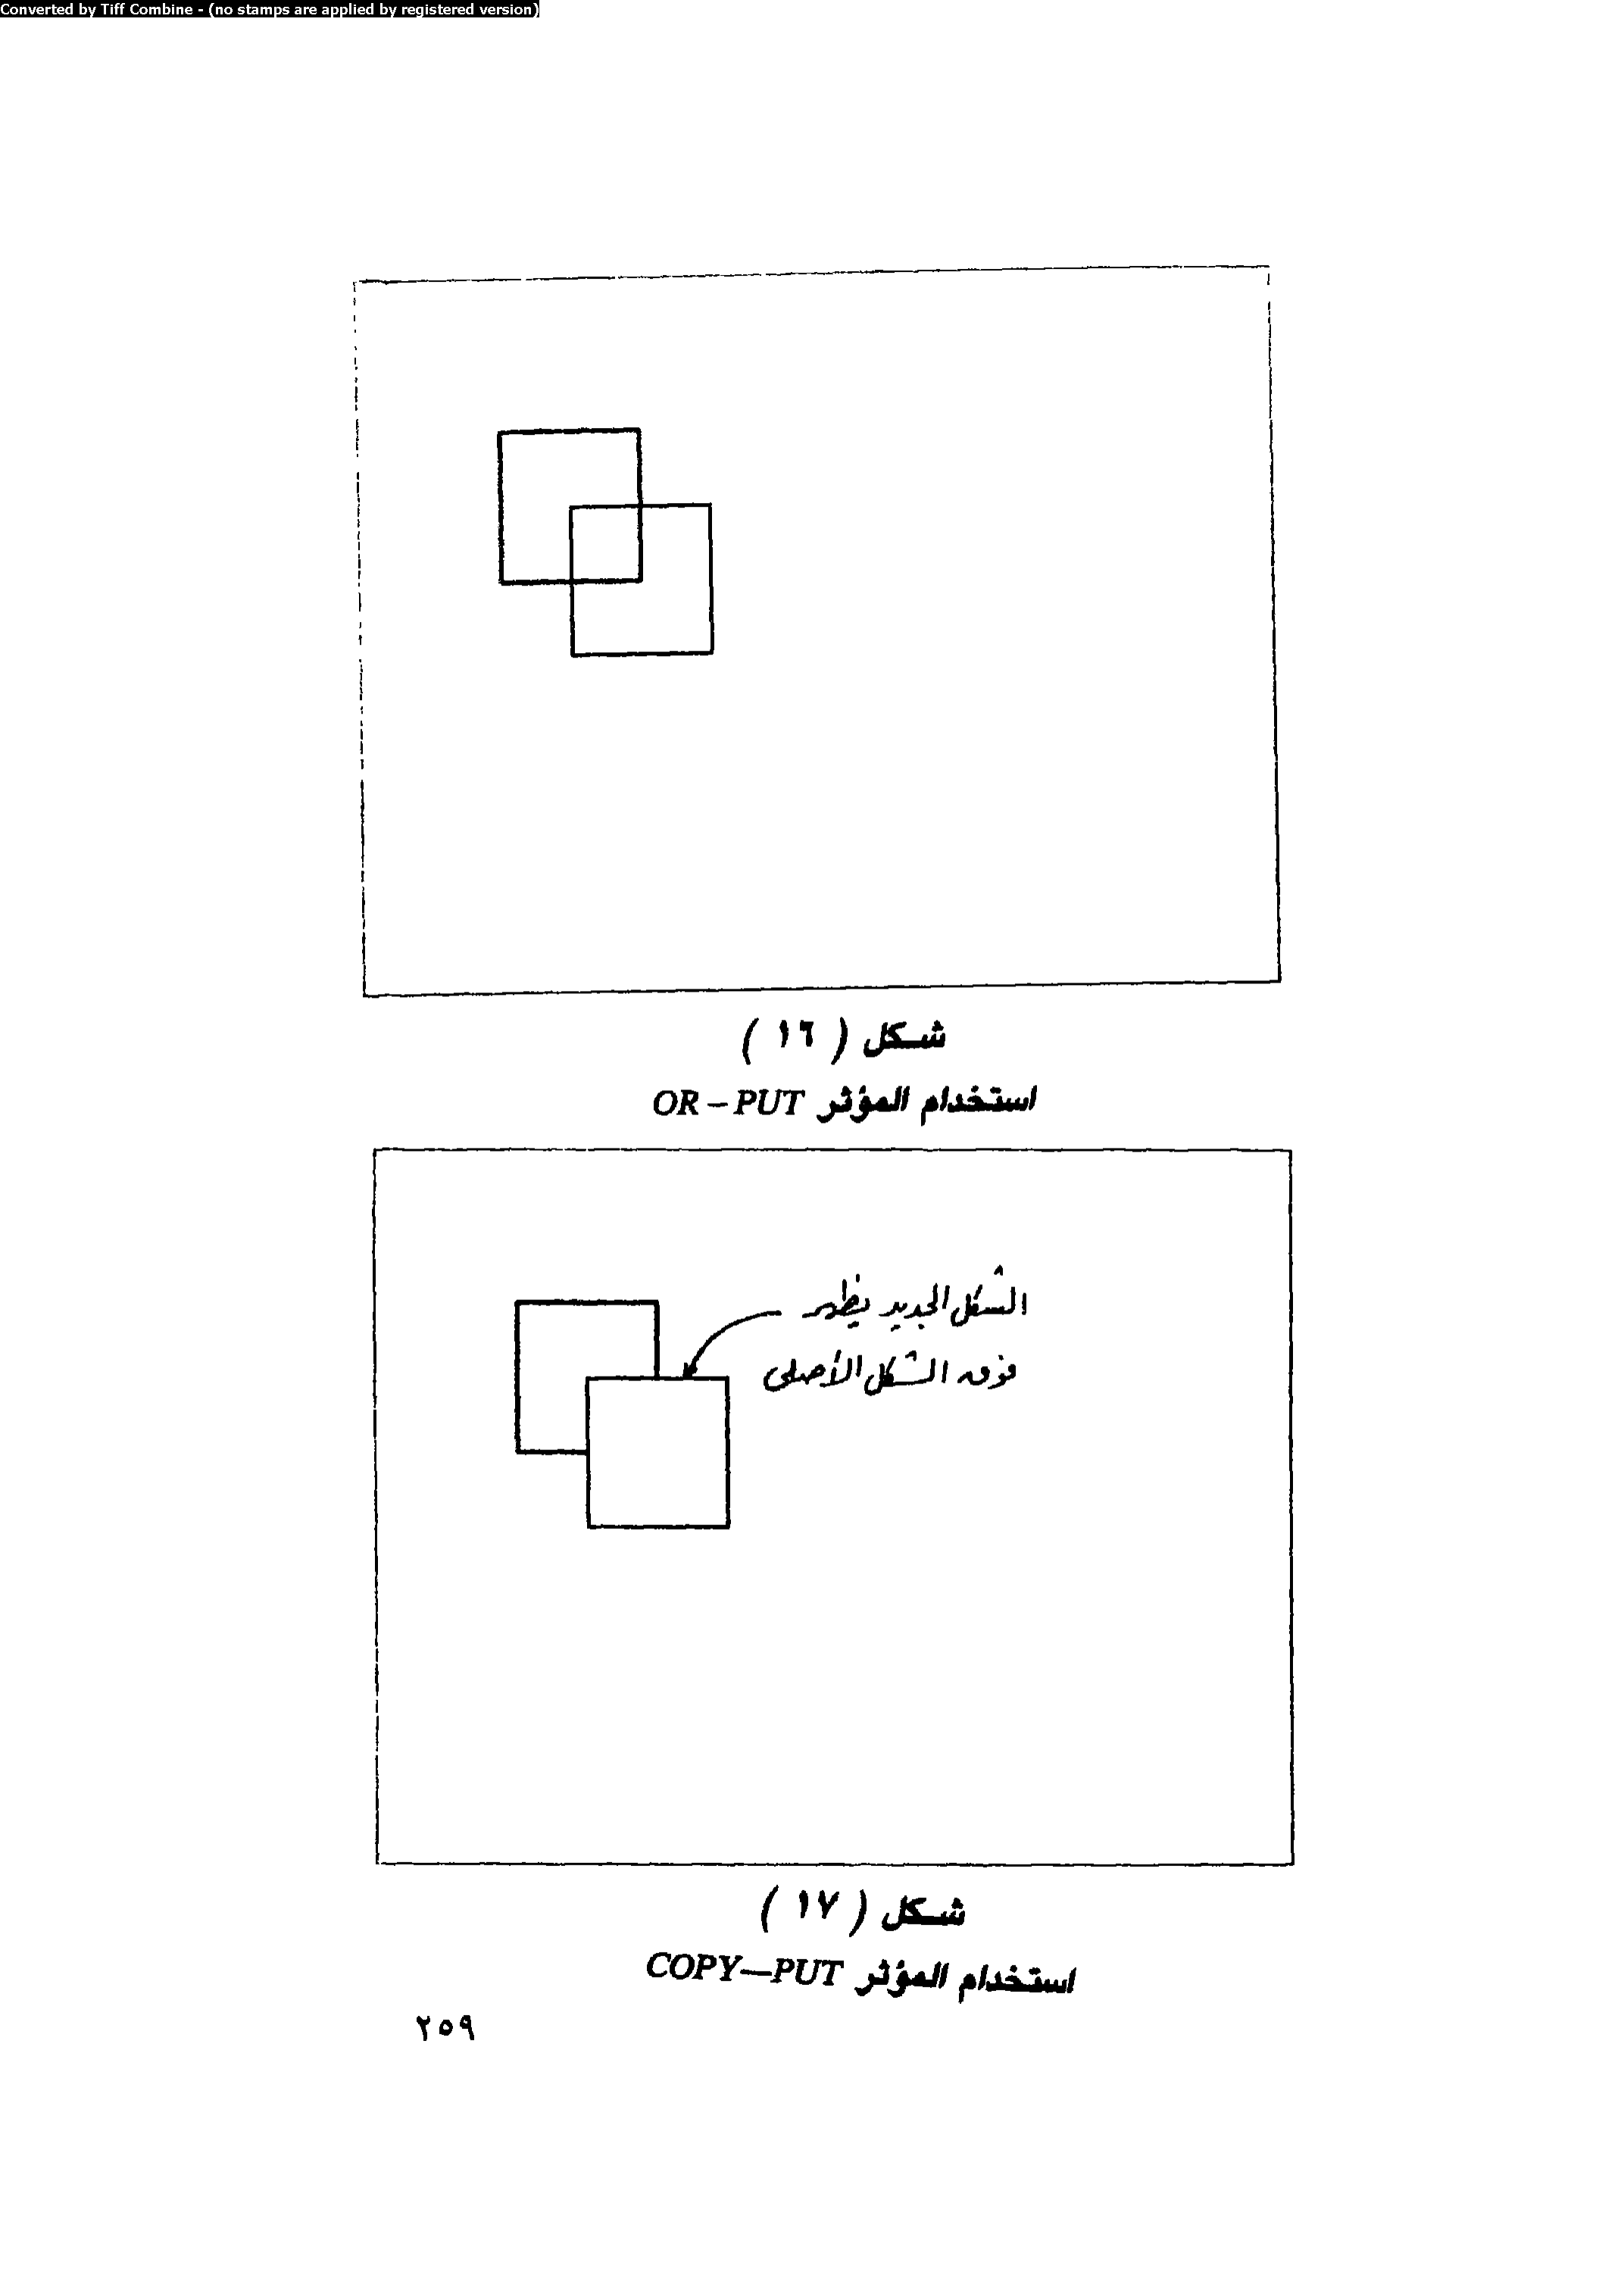 Converted by Tiff Combine - (no stamps are applied by registered version)
شكل ( ١٦ )
استخدام المؤثر OR – PUT
الشكل الجديد يظهر
فوق الشكل الأصلى
شكل ( ١٧ )
استخدام المؤثر COPY—PUT
٢٥٩